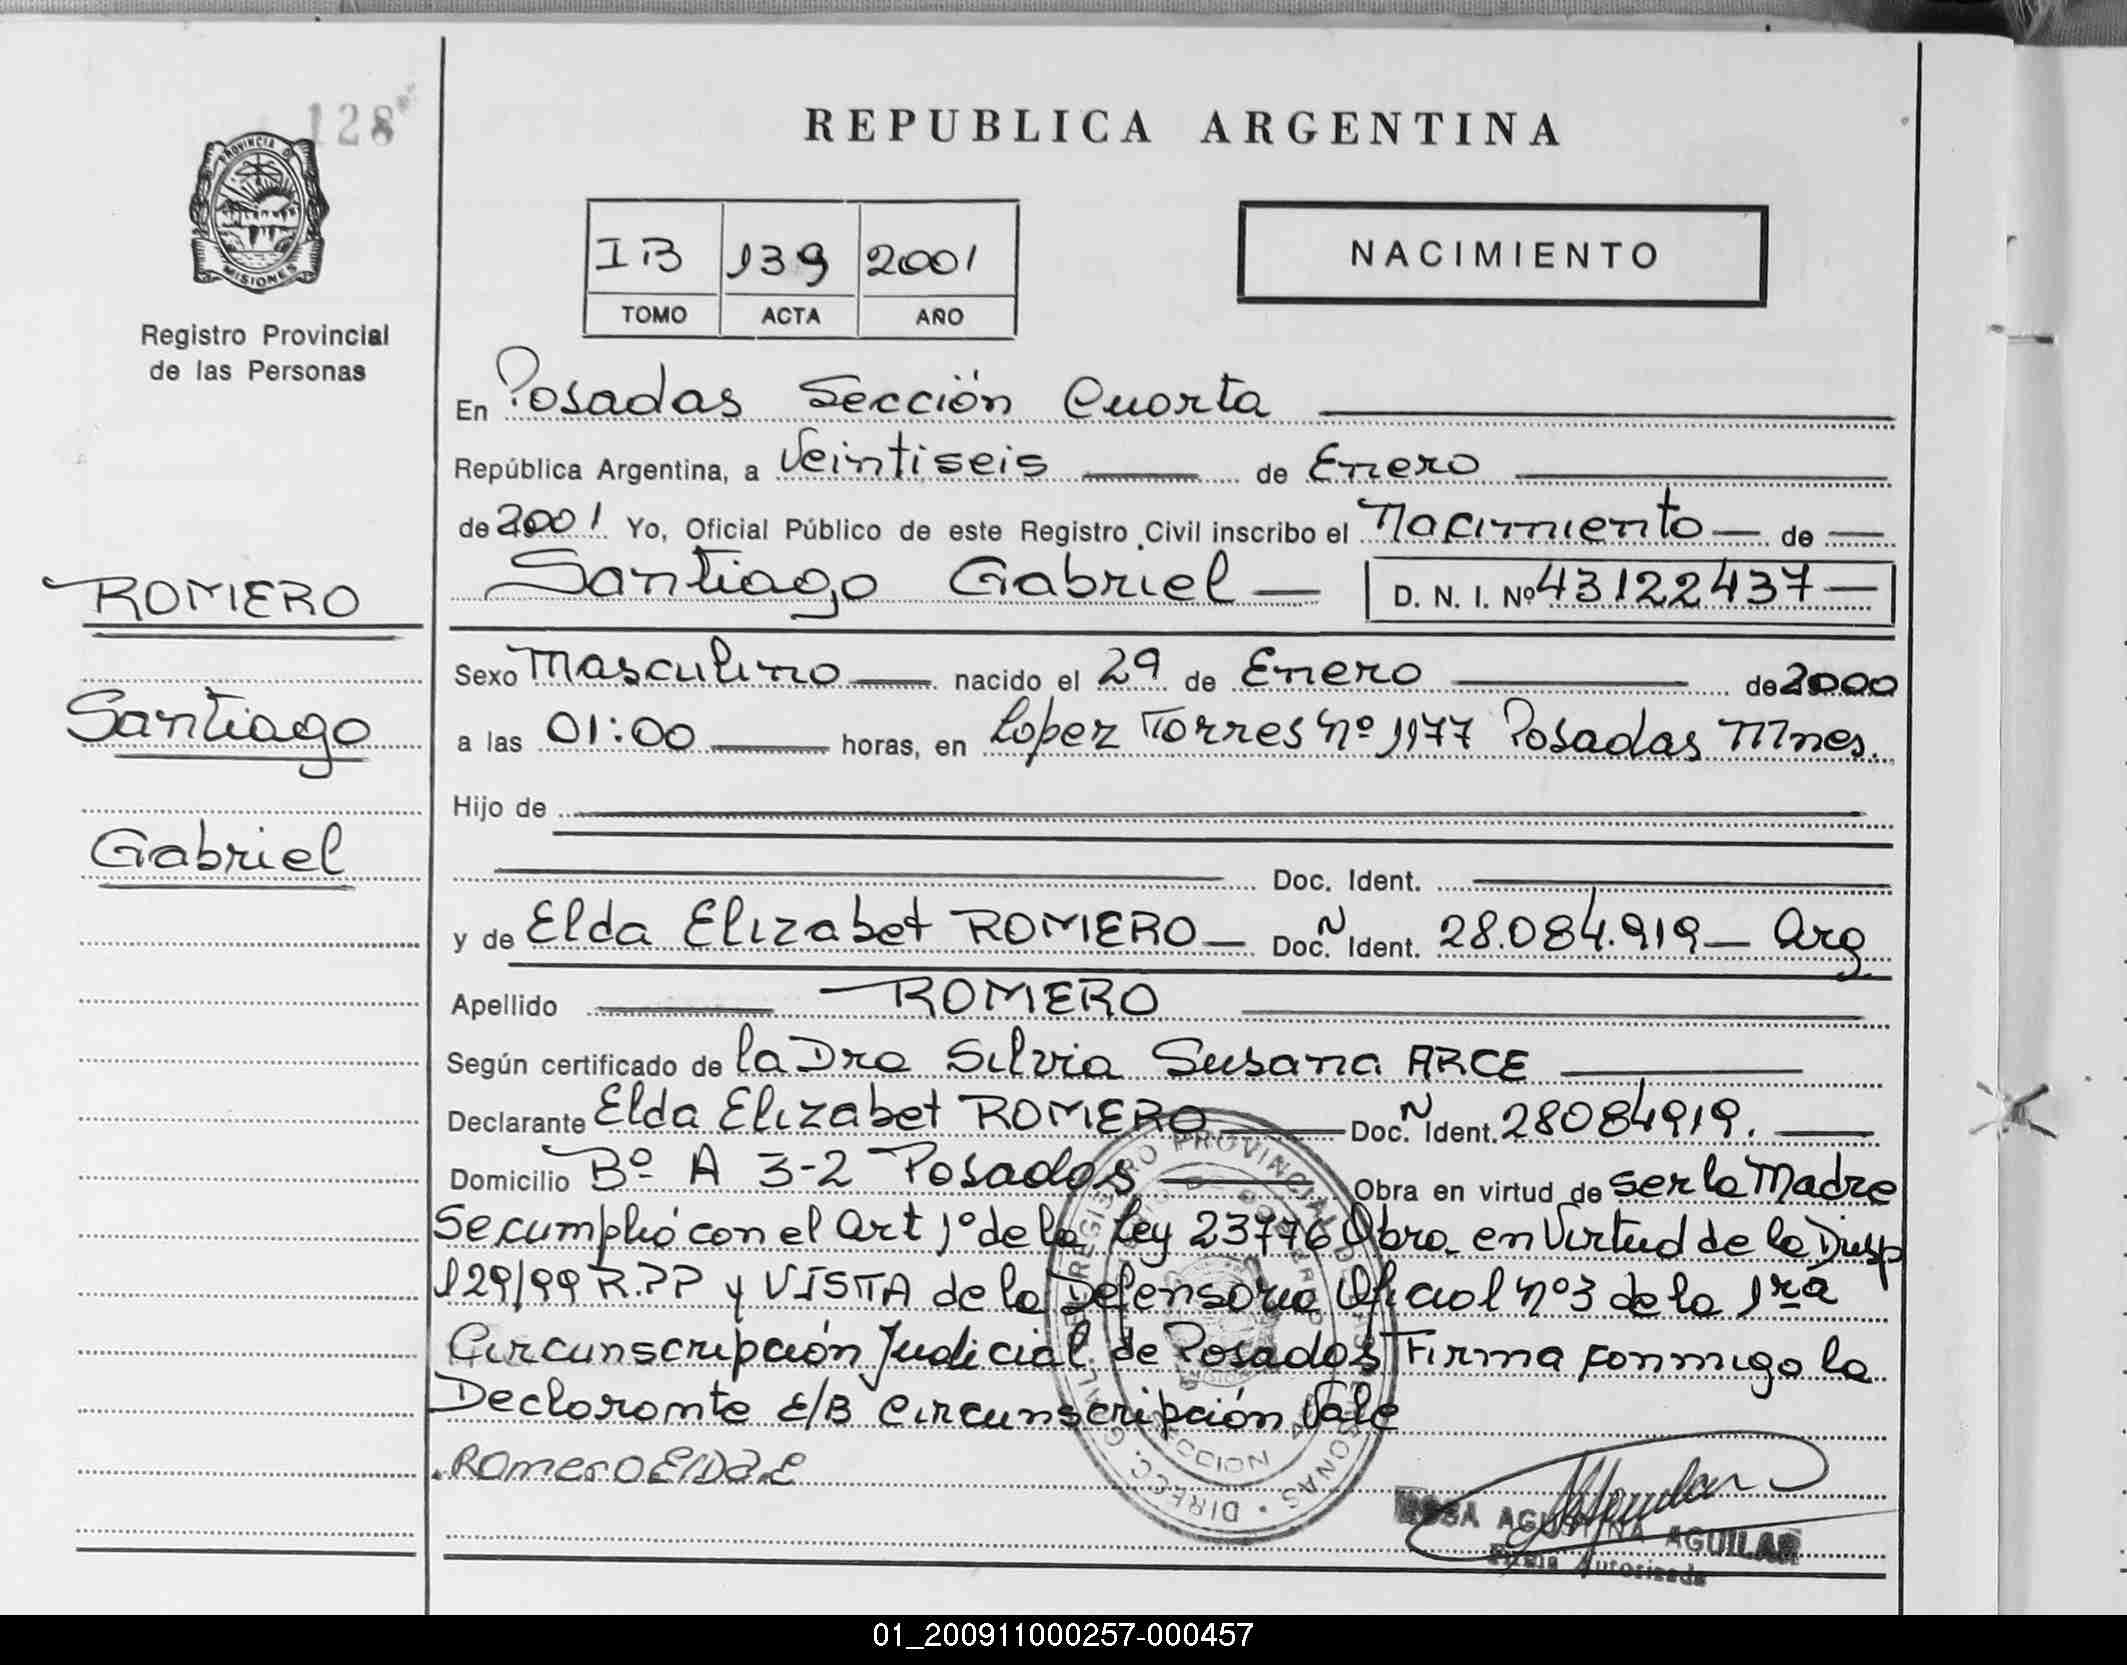 128
PROVINCIA D
MISIONES
Registro Provincial
de las Personas
ROMERO
Santiago
Gabriel
REPUBLICA ARGENTINA
IB 139 2001
TOMO ACTA AÑO
NACIMIENTO
En Posadas Sección Cuarta
República Argentina, a Veintiseis de Enero
de 2001 Yo, Oficial Público de este Registro Civil inscribo el Nacimiento de
Santiago Gabriel D. N. I. Nº 43122437
Sexo Masculino nacido el 29 de Enero de 2000
a las 01:00 horas, en Lopez Torres Nº 1177 Posadas Mnes.
Hijo de
Doc. Ident.
y de Elda Elizabet ROMERO Doc. N Ident. 28.084.919 Arg
Apellido ROMERO
Según certificado de la Dra Silvia Susana ARCE
Declarante Elda Elizabet ROMERO Doc. N Ident. 28084919.
Domicilio Bº A 3-2 Posadas Obra en virtud de ser la Madre
Se cumplió con el Art 1º de la Ley 23776 Obra en Virtud de la Disp
129/99 R.PP y VISTA de la Defensoria Oficial Nº3 de la 1ra
Circunscripción Judicial de Posadas Firma conmigo la
Declarante E/B Circunscripción Vale
Romero Elda E
DIRECC. GRAL. REGISTRO PROVINCIAL DE PERSONAS
ROSA AGUSTINA AGUILAR
Firma Autorizada
01_200911000257-000457